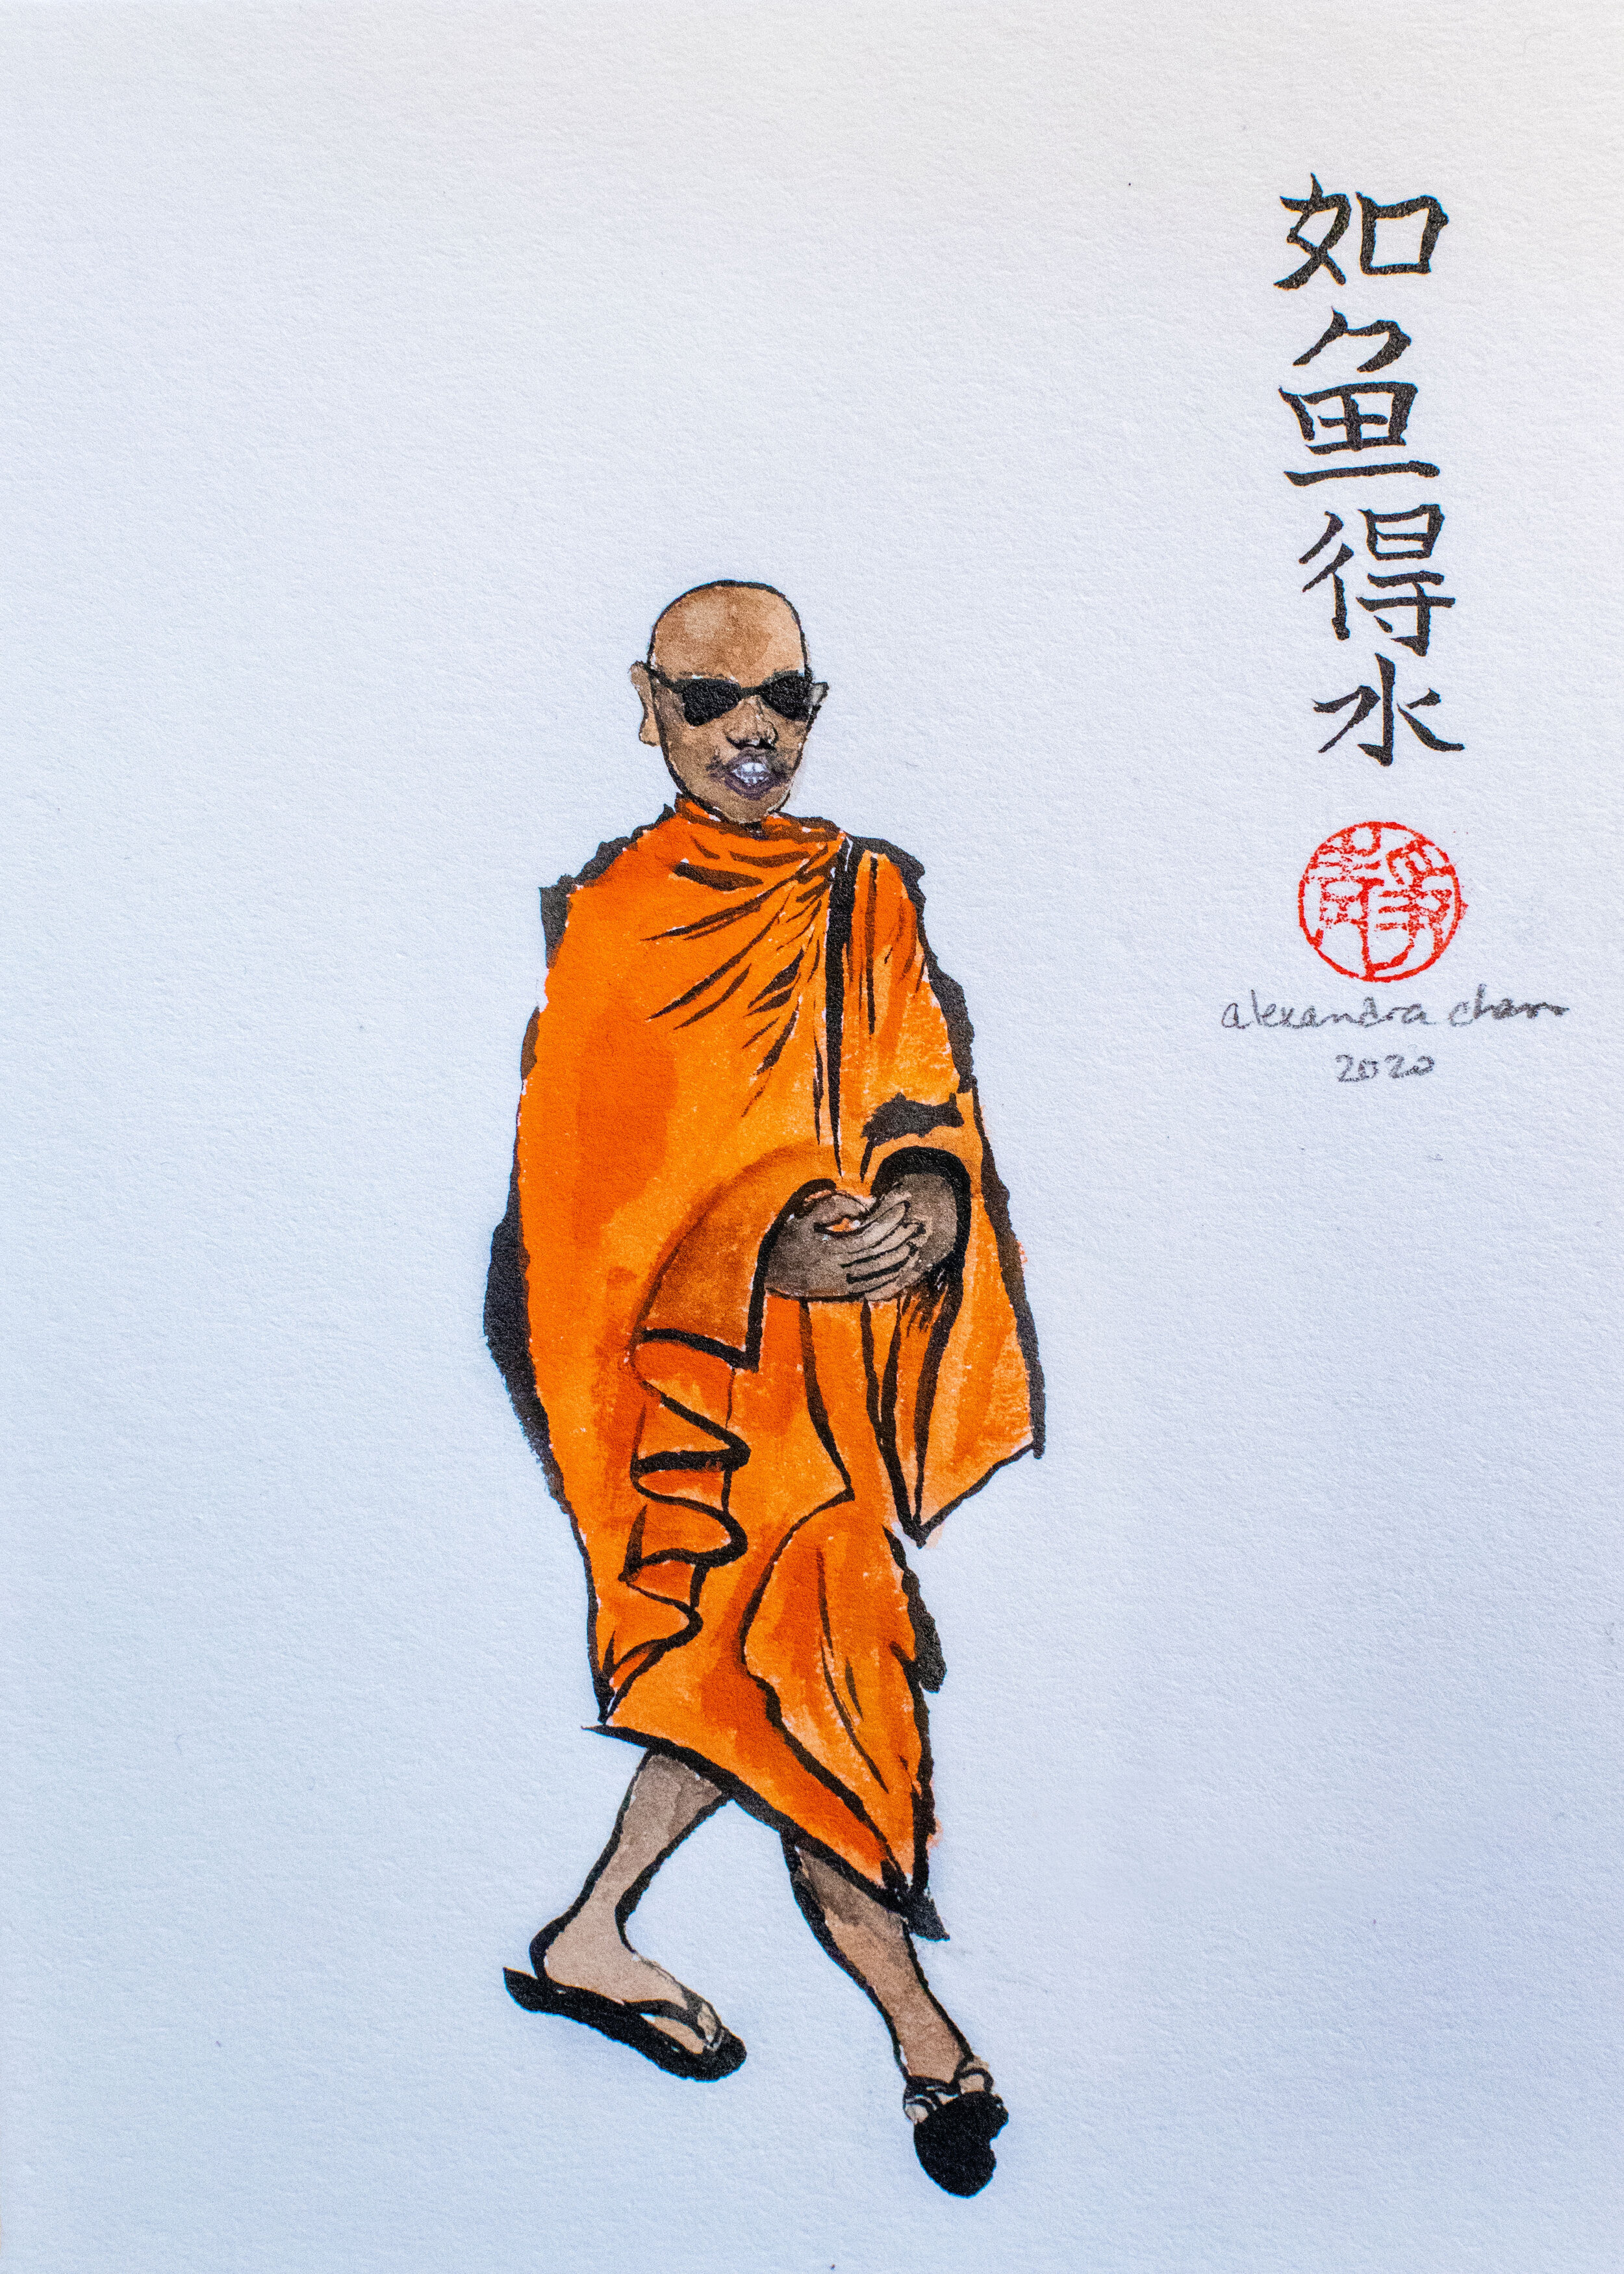 如鱼得水
靜
alexandra chan
2020